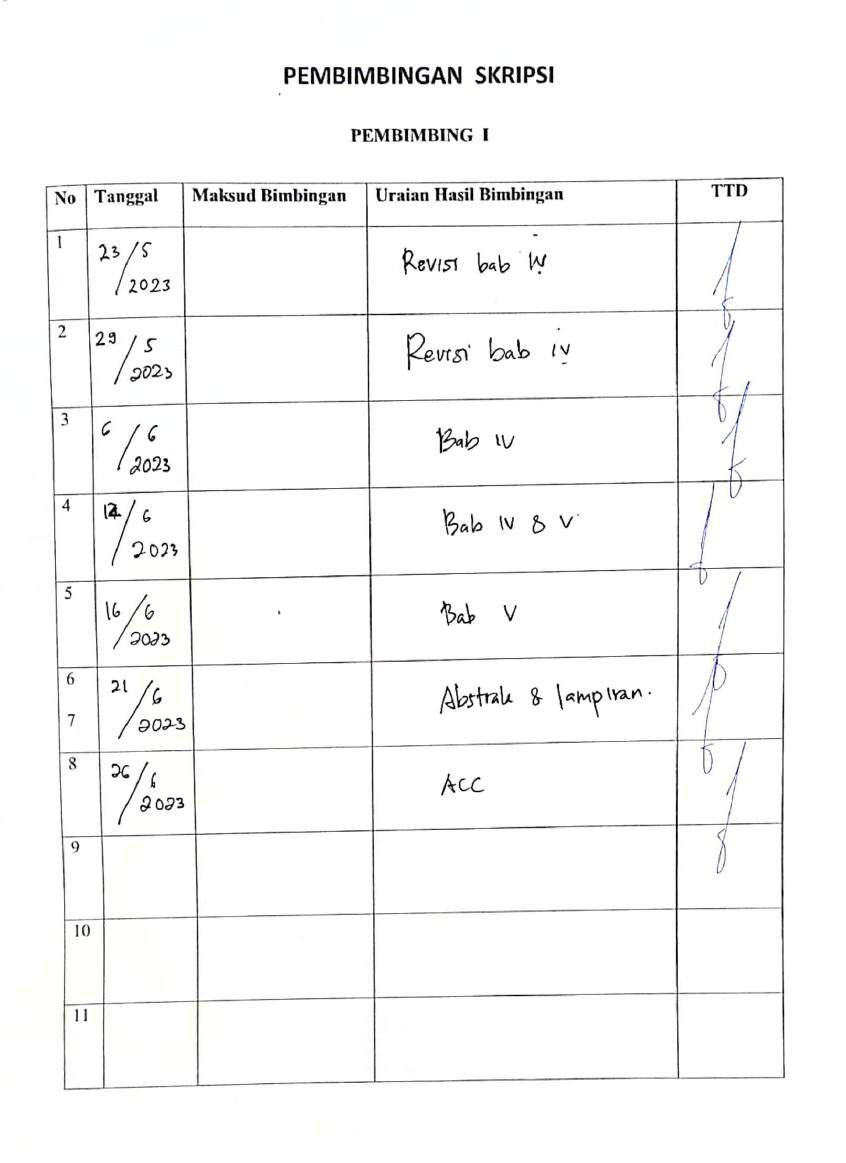 PEMBIMBINGAN SKRIPSI
PEMBIMBING I
No Tanggal Maksud Bimbingan Uraian Hasil Bimbingan TTD
1 23/5/2023 Revisi bab IV
2 29/5/2023 Revisi bab iv
3 6/6/2023 Bab IV
4 /6/2023 Bab IV & V
5 16/6/2023 Bab V
6 21/6/2023 Abstrak & lampiran.
7
8 26/6/2023 ACC
9
10
11